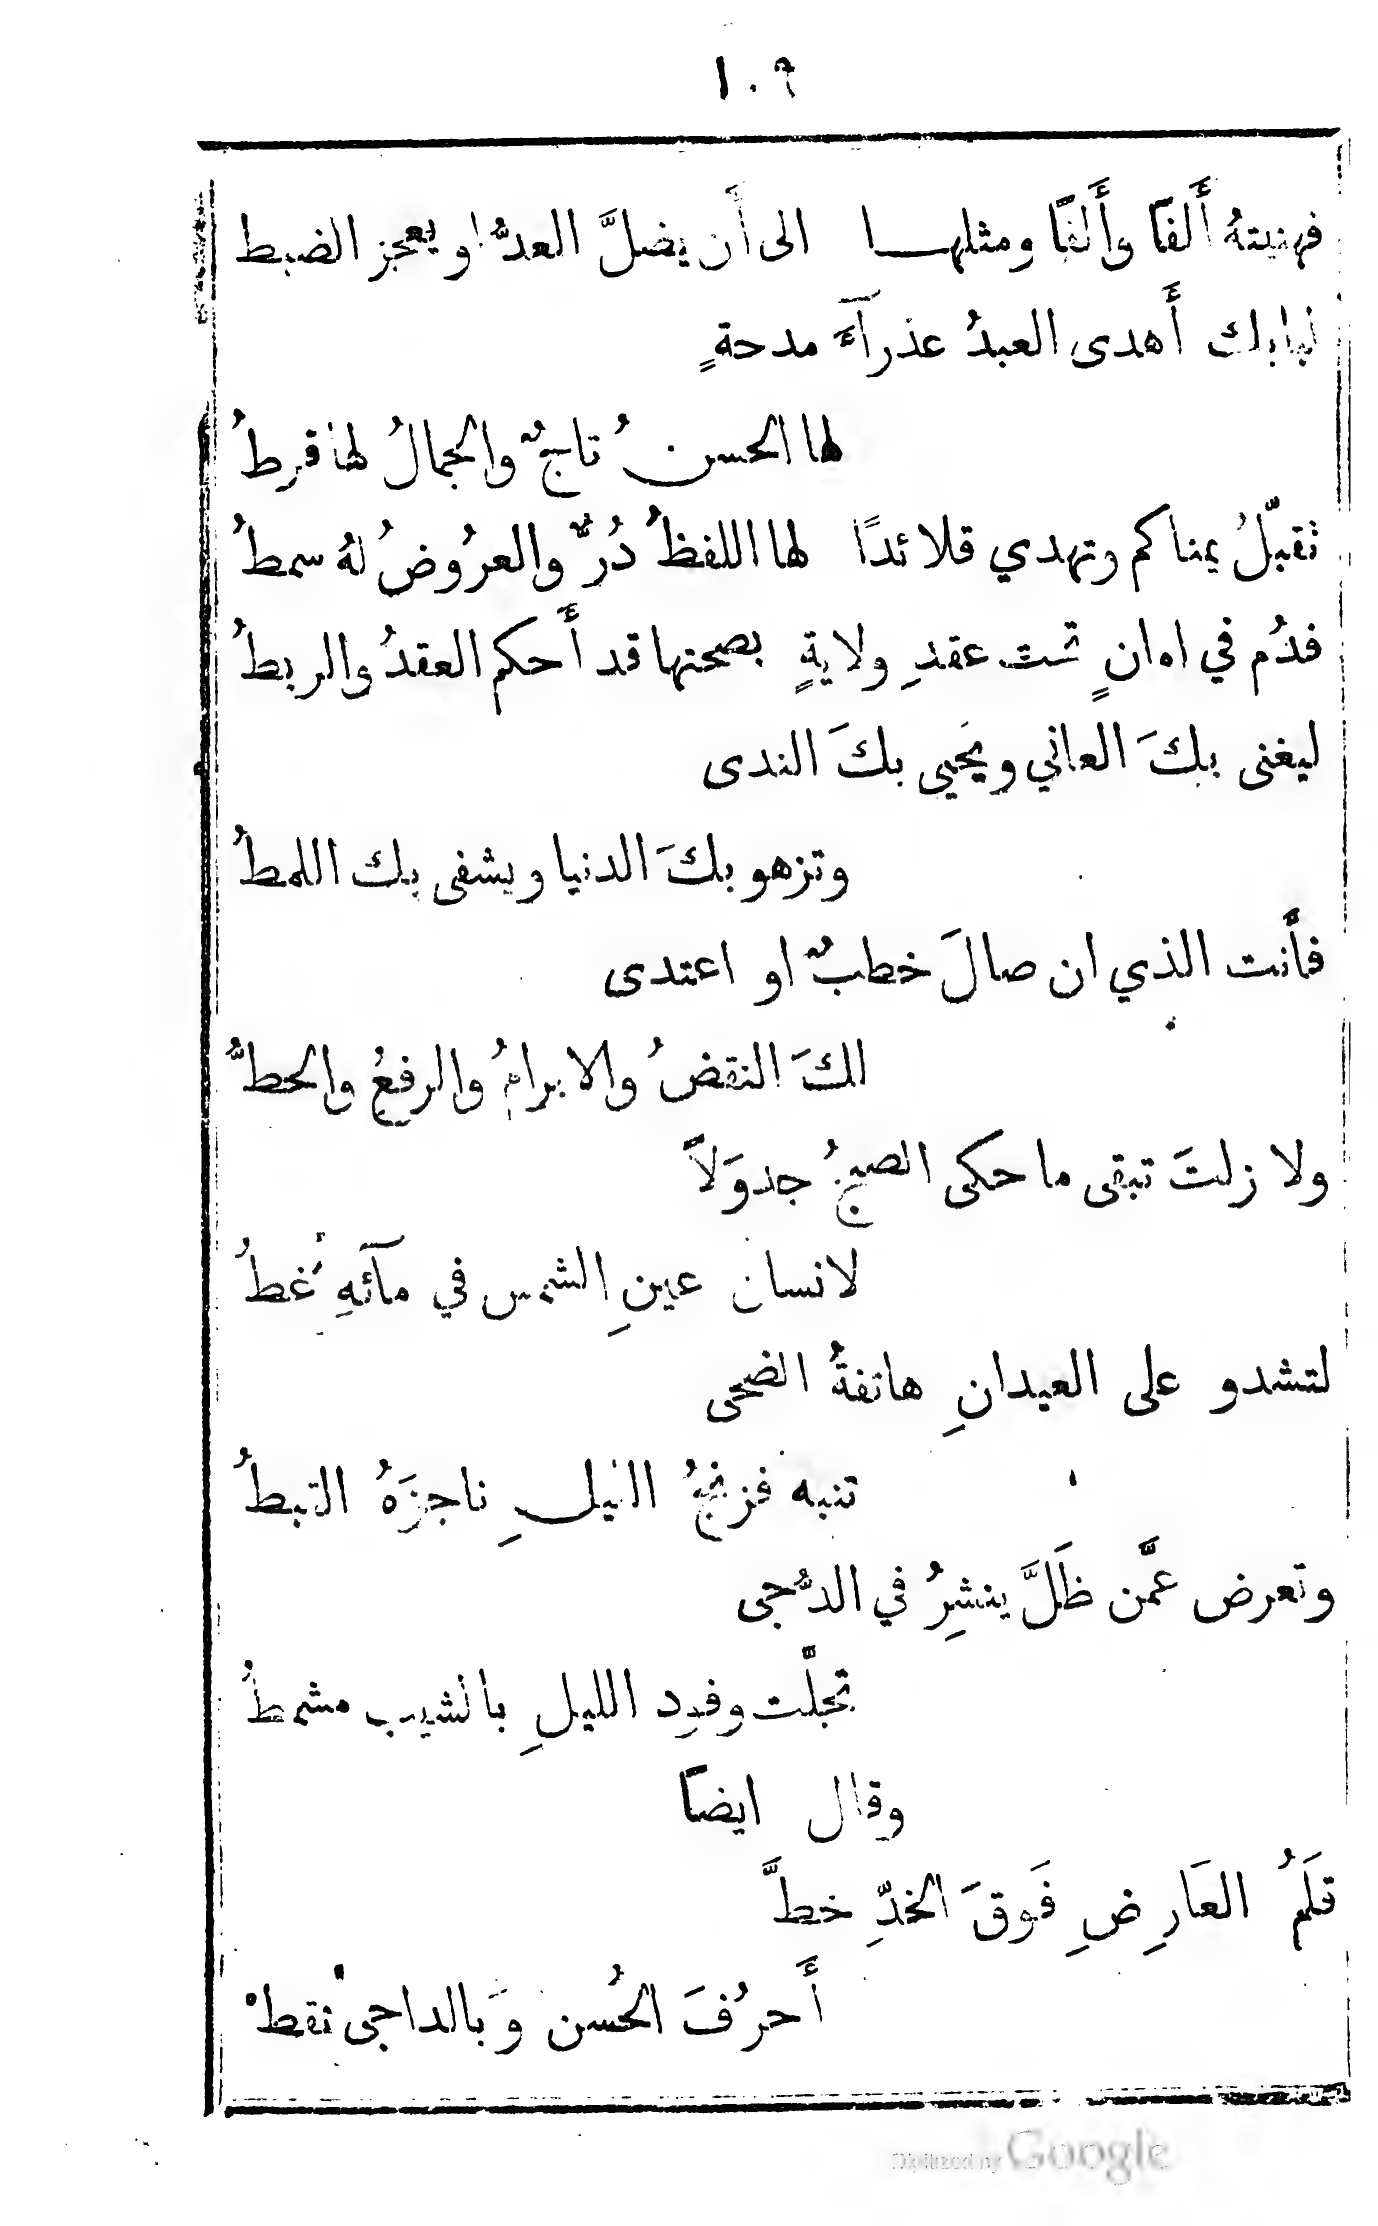 ١٠٩
فهنيتهُ أَلفًا وأَلفًا ومثلهـا الى أَن يضلَّ العدُّ او يعجز الضبط
لبابك أَهدى العبدُ عذرآءَ مدحةٍ
لها الحسنُ تاجٌ والجمالُ لها قرطُ
تقبّلُ يمناكم وتهدي قلائدًا لها اللفظُ دُرٌّ والعرُوضُ لهُ سمطُ
فدُم في امانٍ تحت عقدِ ولايةٍ بصحتها قد أَحكم العقدُ والربطُ
ليغنى بكَ العاني ويَحيى بكَ الندى
وتزهو بكَ الدنيا ويشفى بك اللمطُ
فأَنت الذي ان صالَ خطبٌ او اعتدى
لكَ النقضُ والابرامُ والرفعُ والحطُّ
ولا زلتَ تبقى ما حكى الصبحُ جدوَلاً
لانسان عينِ الشمس في مآئهِ غُطُ
لتشدو على العيدانِ هاتفةُ الضحى
تنبه فزنجُ النيلِ ناجزَهُ القبطُ
وتعرض عمَّن ظَلَّ ينشرُ في الدُّجى
تجلَّت وفود الليلِ بالشيب مشمطُ
وقال ايضاً
قلَمُ العَارِضِ فَوقَ الخدِّ خطَّ
أَحرُفَ الحُسن وَبالداجي نقطْ
Digitized by Google